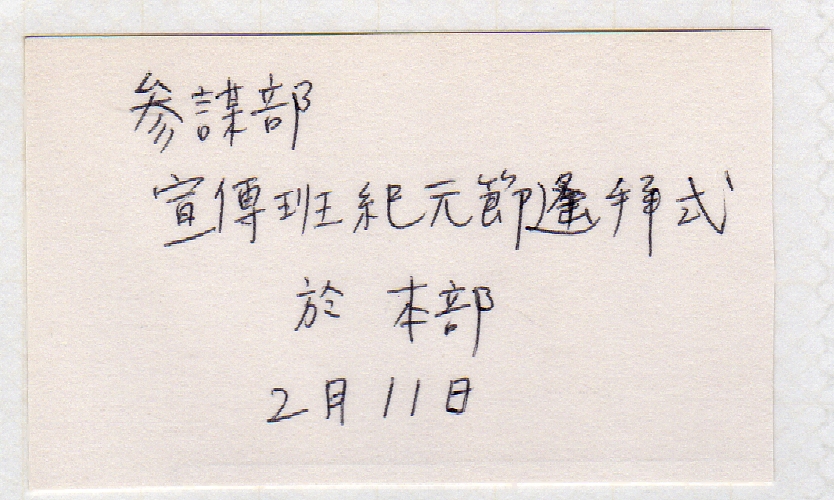 参謀部
宣傳班紀元節遙拝式
於 本部
2月11日